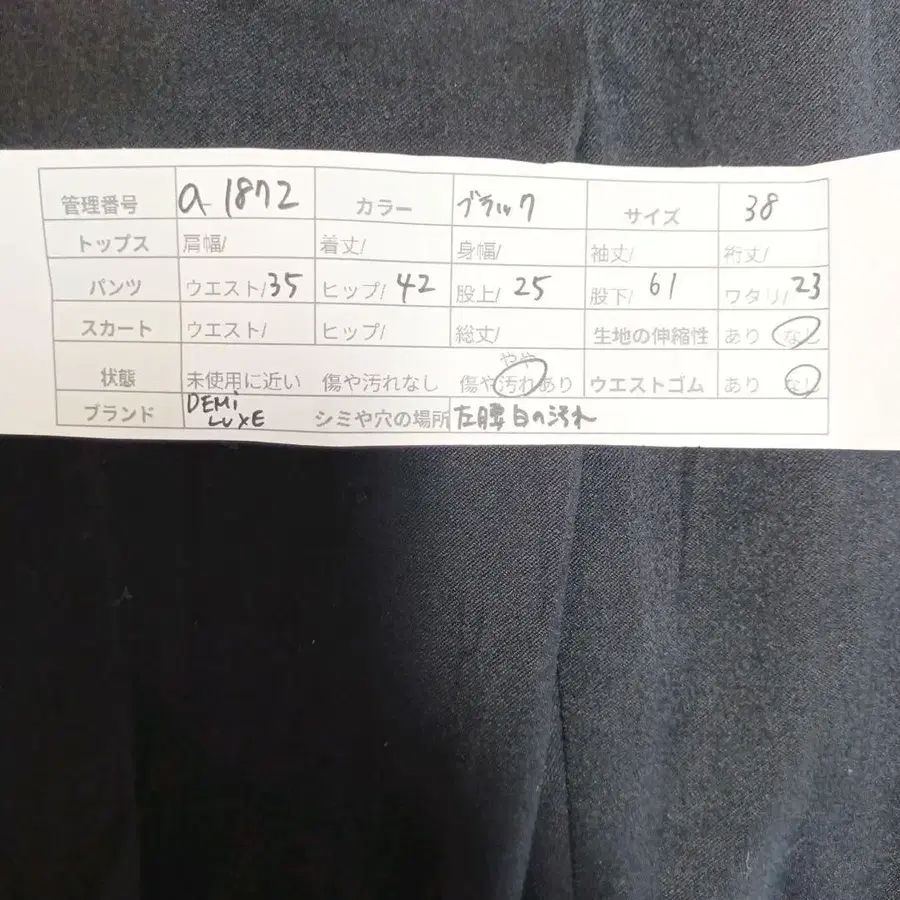 管理番号 a 1872 カラー ブラック サイズ 38
トップス 肩幅/ 着丈/ 身幅/ 袖丈/ 裄丈/
パンツ ウエスト/35 ヒップ/ 42 股上/ 25 股下/ 61 ワタリ/ 23
スカート ウエスト/ ヒップ/ 総丈/ 生地の伸縮性 あり なし
やや
状態 未使用に近い 傷や汚れなし 傷や汚れあり ウエストゴム あり なし
ブランド DEMi LUXE シミや穴の場所 左腰白の汚れ